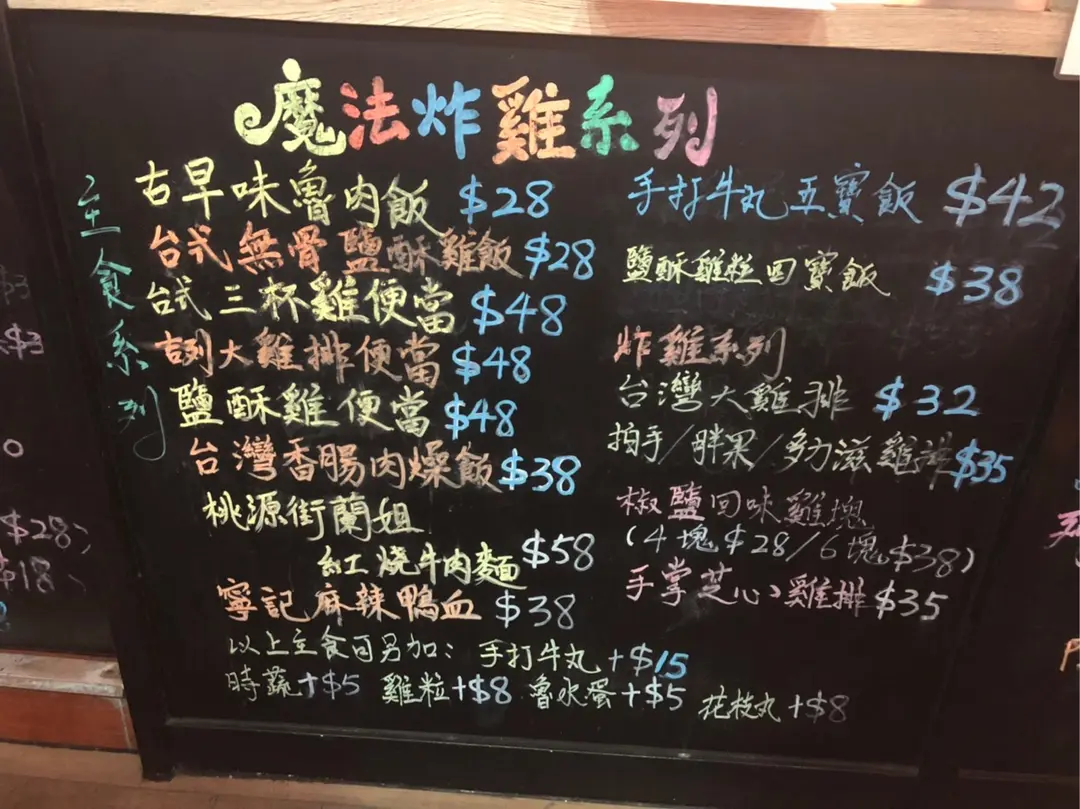 魔法炸雞系列
主食系列
古早味魯肉飯 $28
台式無骨鹽酥雞飯 $28
台式三杯雞便當 $48
大雞排便當 $48
鹽酥雞便當 $48
台灣香腸肉燥飯 $38
桃源街蘭姐
紅燒牛肉麵 $58
寧記麻辣鴨血 $38
手打牛丸五寶飯 $42
鹽酥雞粒回寶飯 $38
炸雞系列
台灣大雞排 $32
拍手/胖果/多力滋雞排 $35
椒鹽回味雞塊
(4塊$28/6塊$38)
手掌芝心雞排 $35
以上主食可另加: 手打牛丸+$15
時蔬+$5 雞粒+$8 魯水蛋+$5 花枝丸+$8
$28
$18